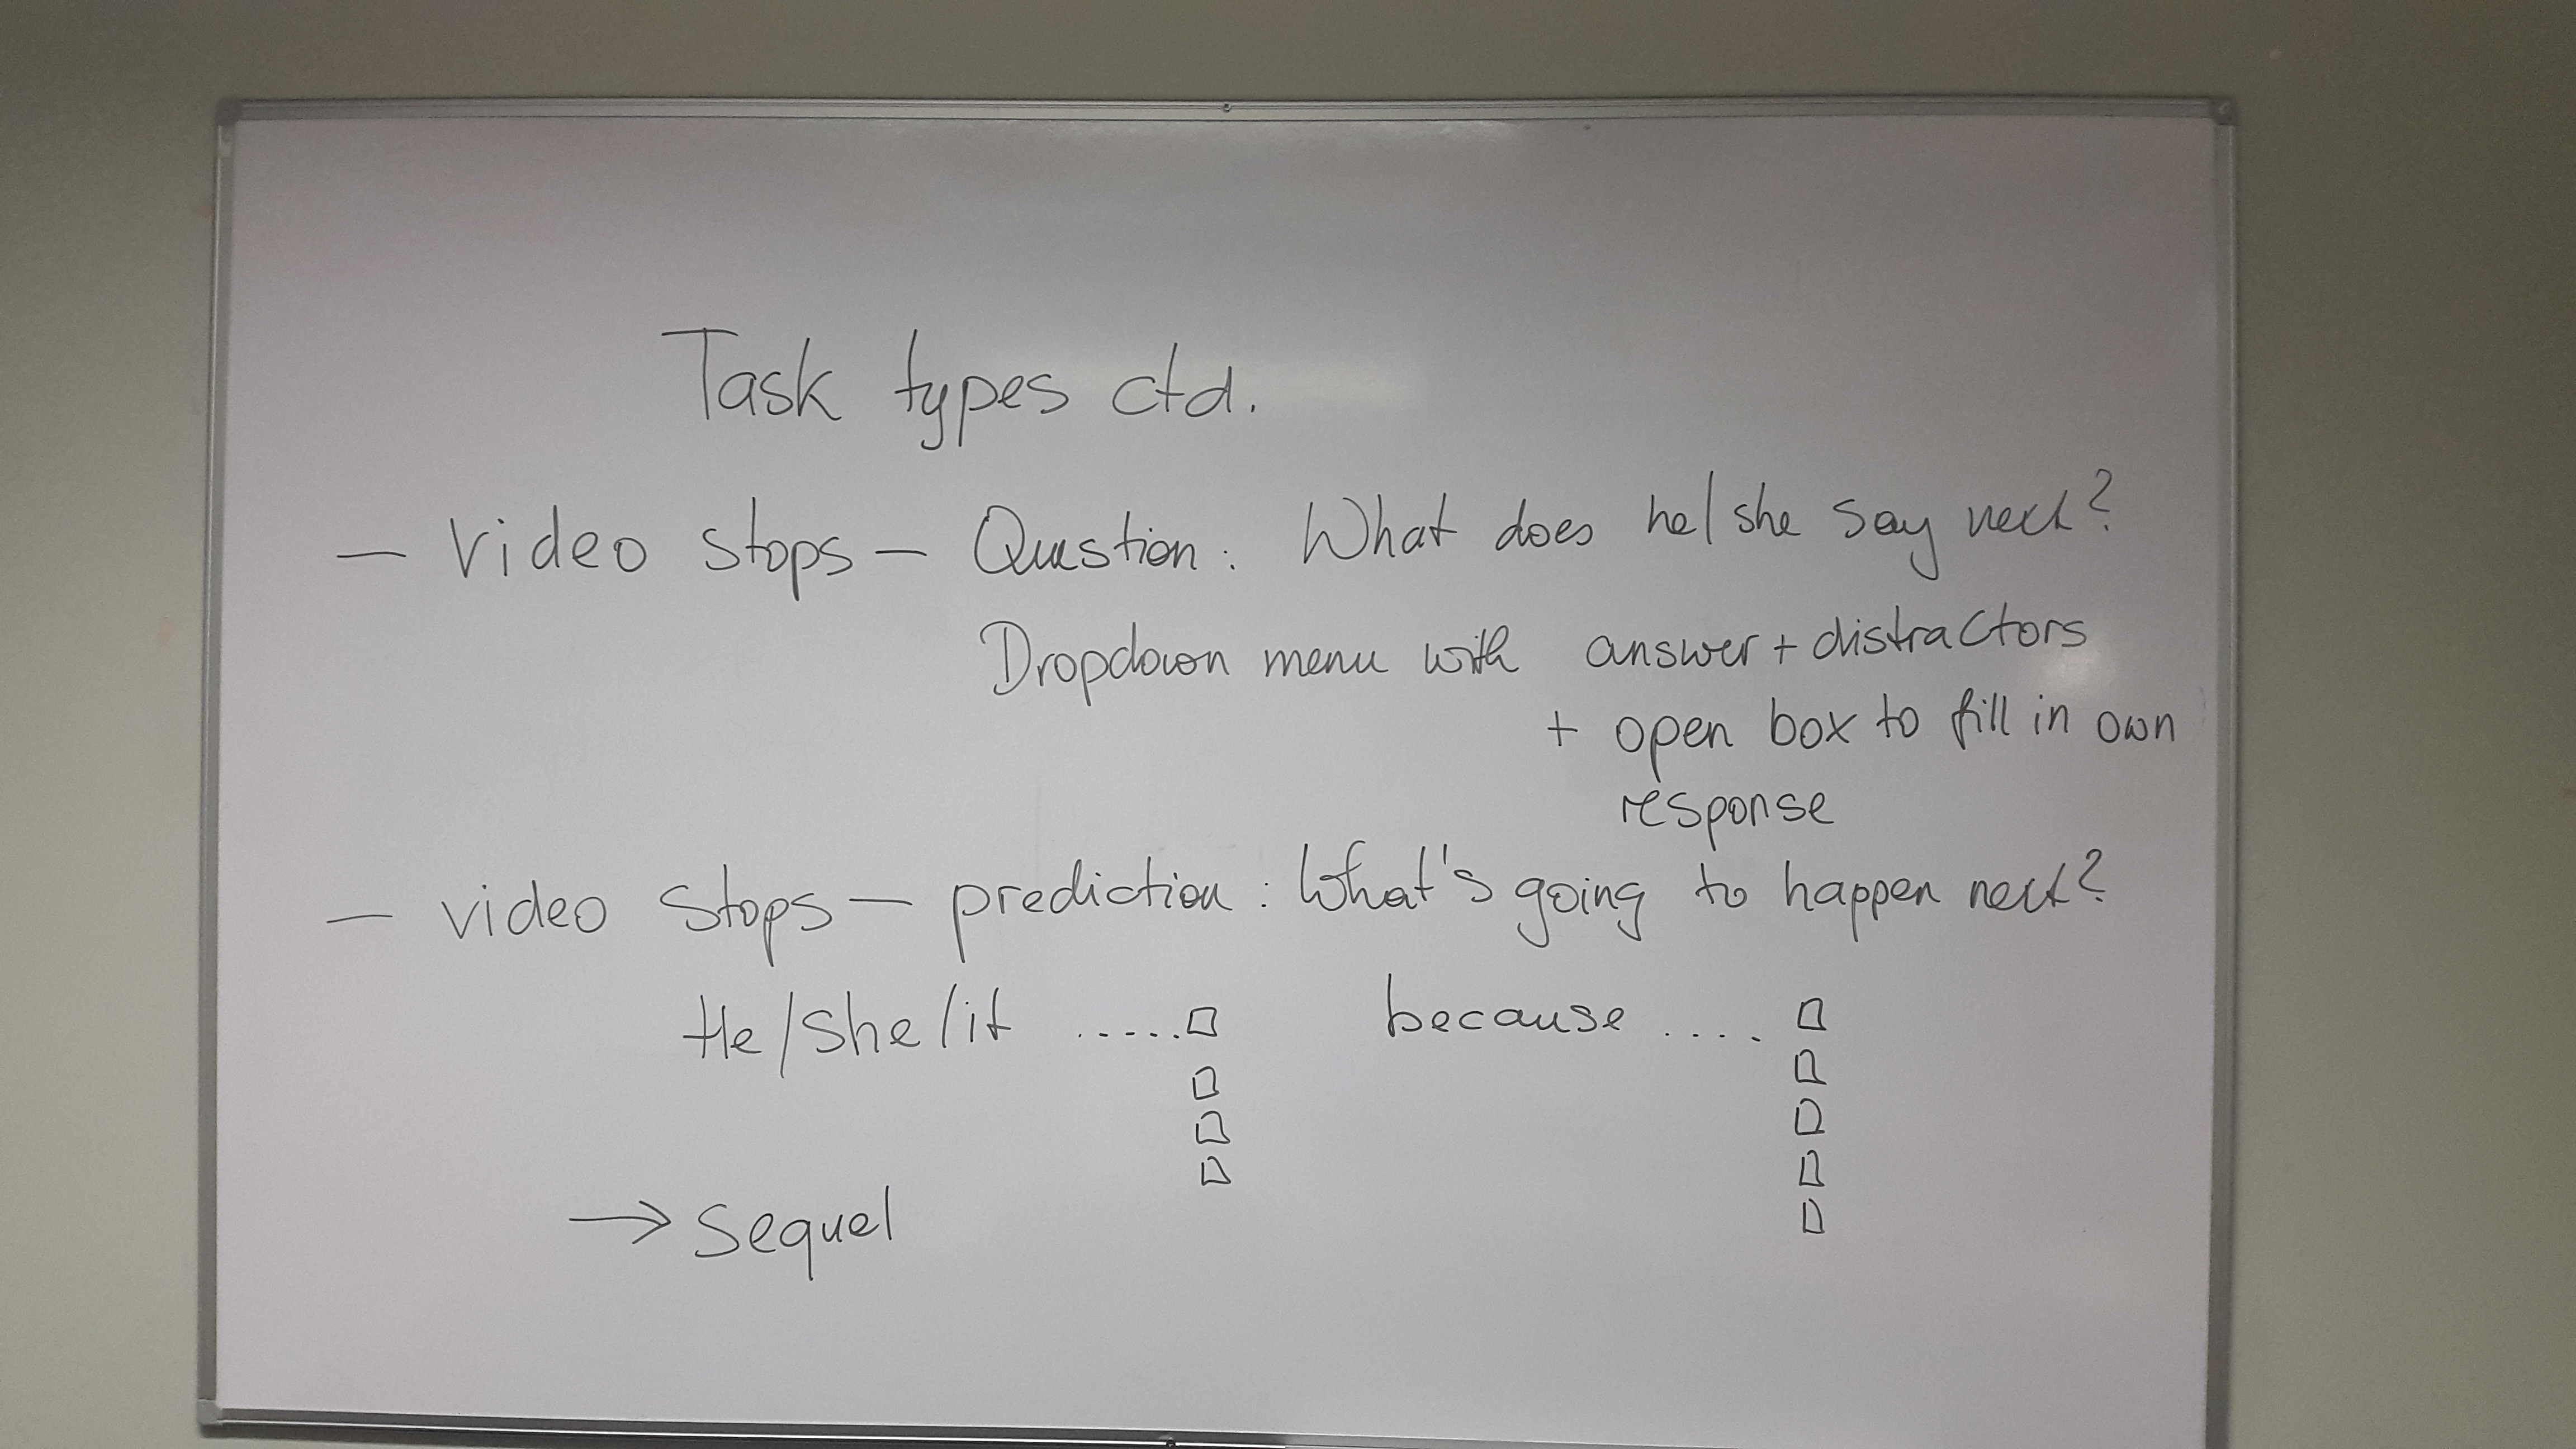 Task types ctd.
— Video stops — Question: What does he/she say next?
Dropdown menu with answer + distractors
+ open box to fill in own
response
— video stops — prediction: What's going to happen next?
He/she/it ..... □ because .... □
□ □
□ □
□ □
□
→ Sequel